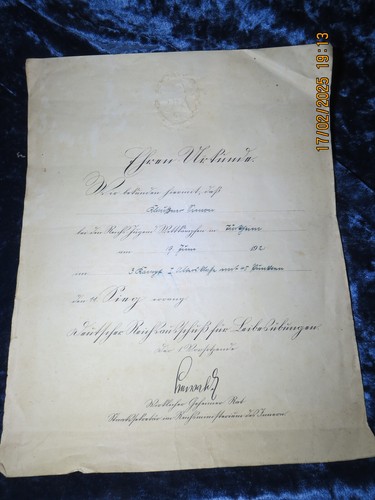 17/02/2025 19:13
Ehren Urkunde.
Wir bekunden hiermit, daß
bei den Reichs Jugend Wettkämpfen in
am 9 Juni 192
im 3 Kampf I. mit 45 Punkten
den Sieg errang
Deutscher Reichsausschuß für Leibesübungen.
der 1 Vorsitzende
Lewald
Wirklicher Geheimer Rat
Staatssekretär im Reichsministerium des Innern.